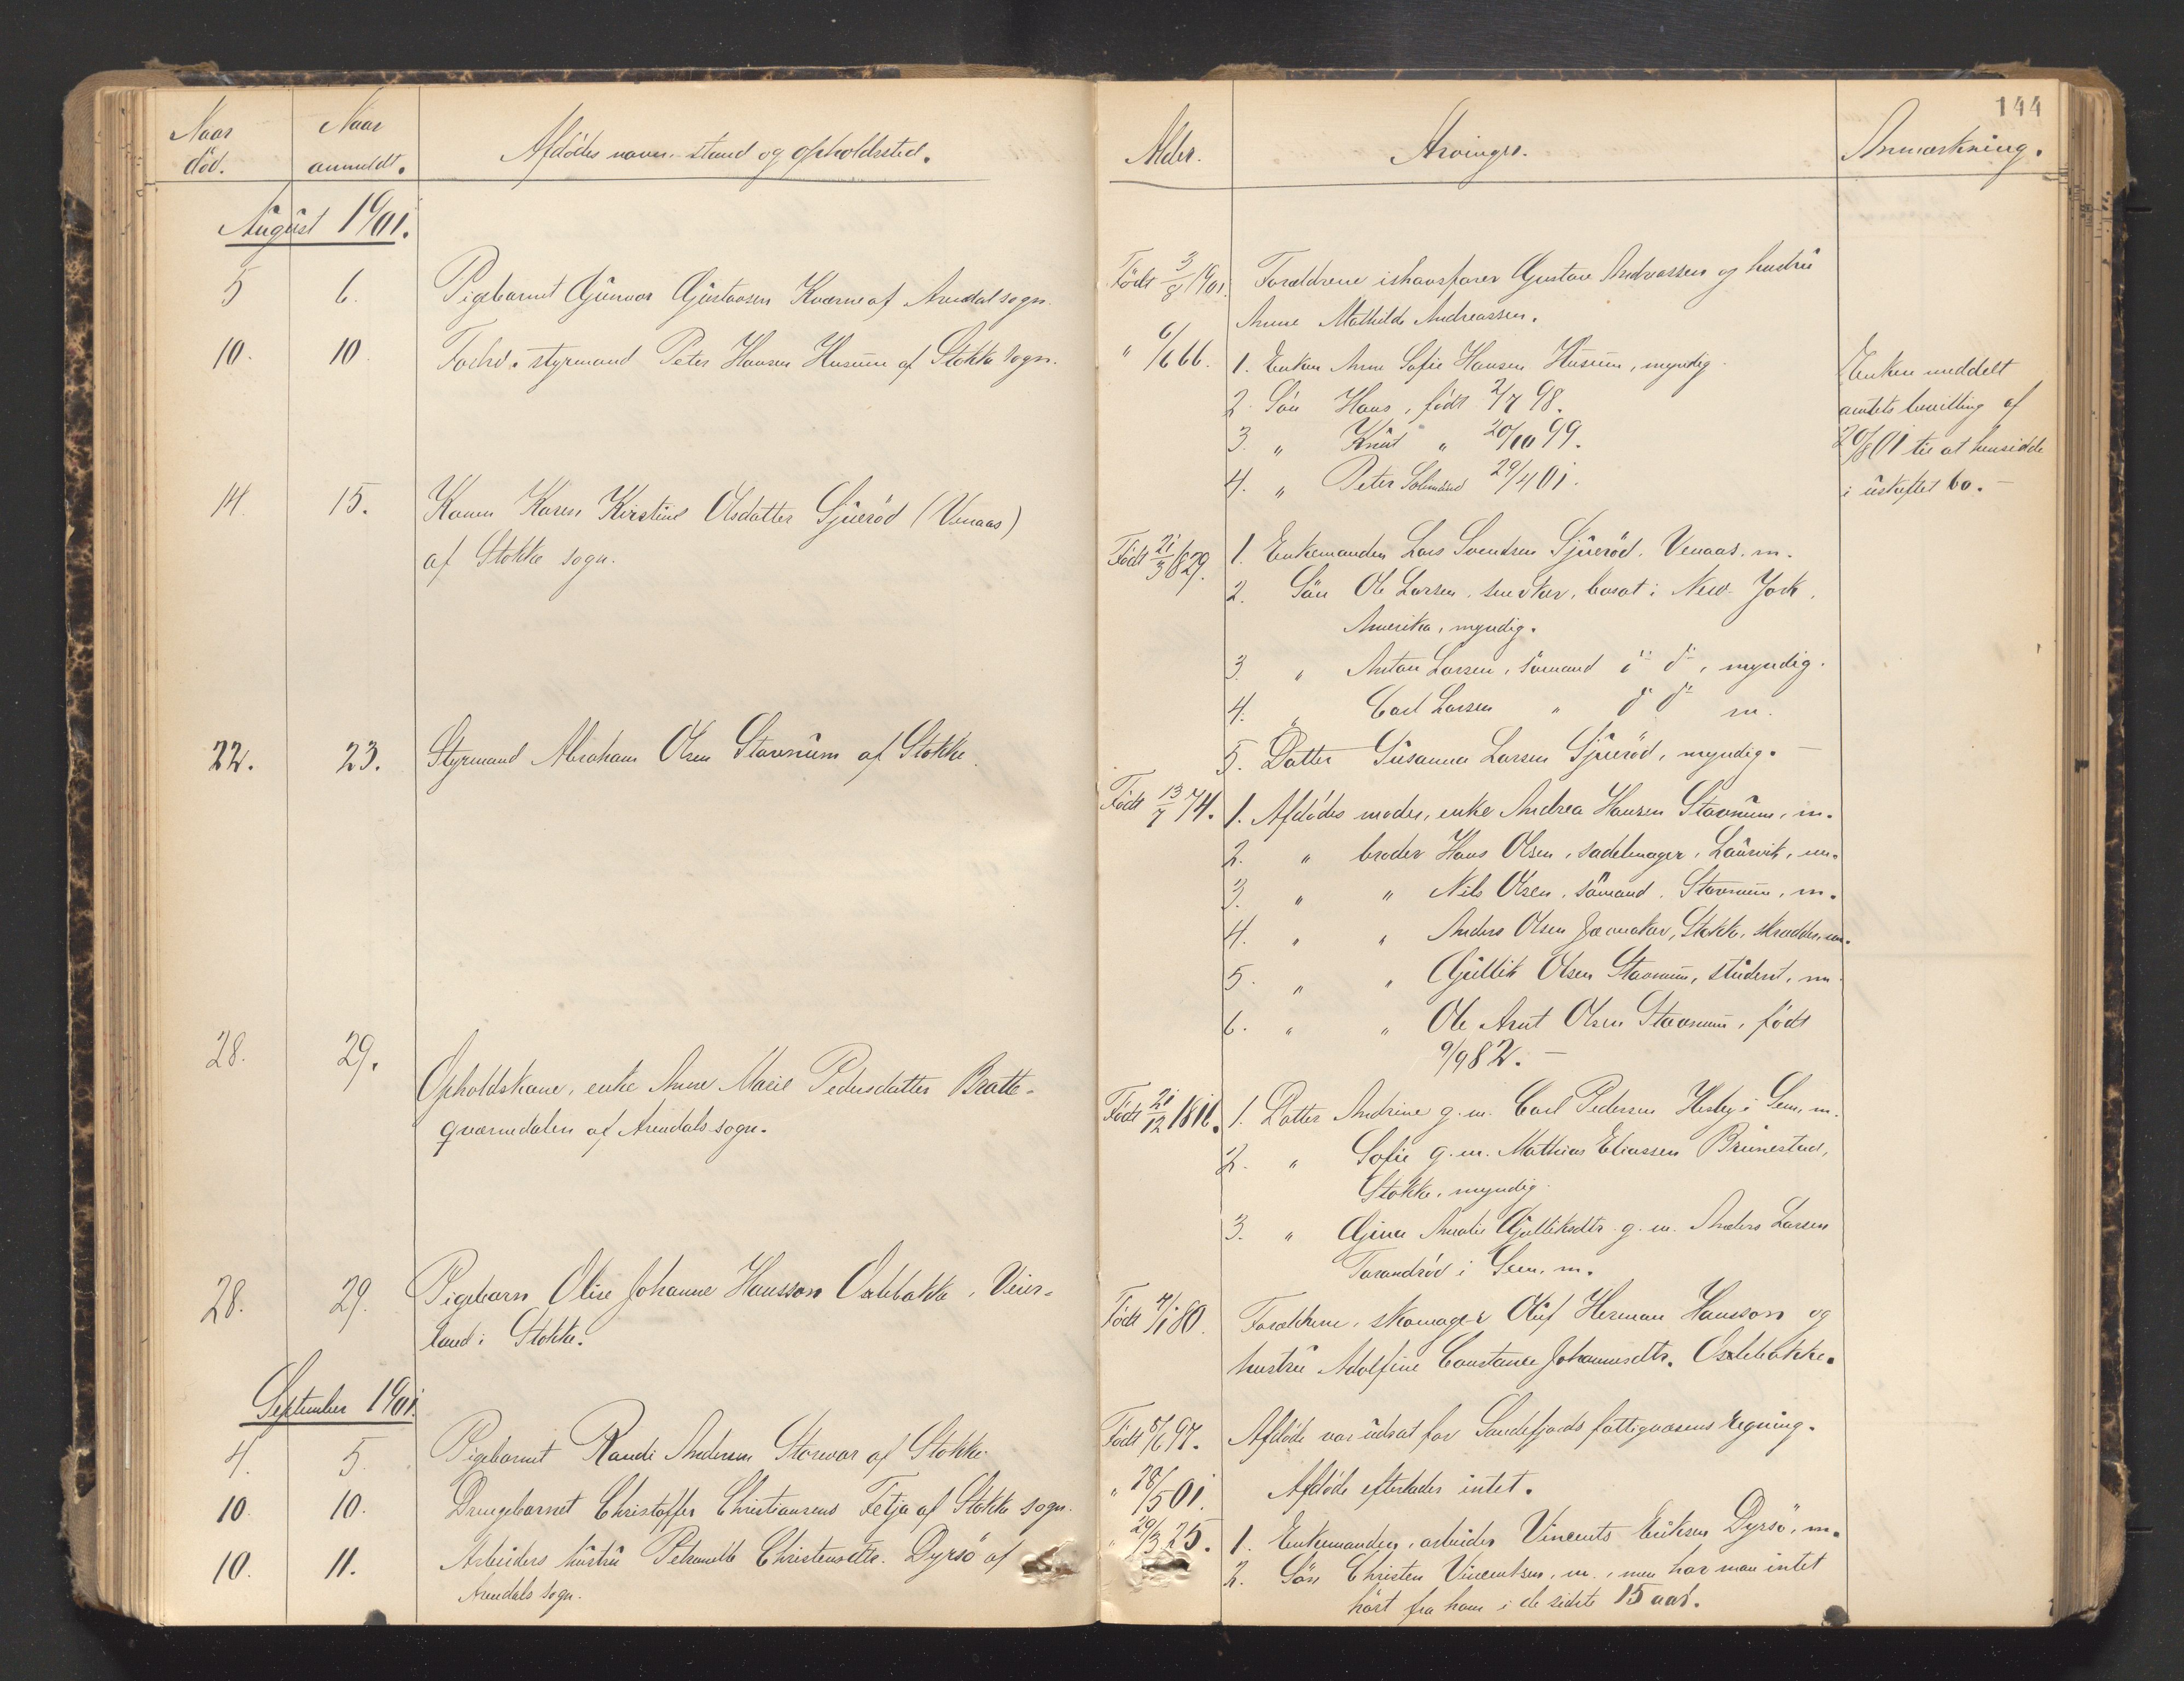 144
Naar død.
Naar anmeldt.
Afdødes navn, stand og opholdssted.
Alder.
Arvinger.
Anmærkning.
August 1901.
5 6. Pigebarnet Gunvor Gustavsen Kverne af Arendal sogn.
Født 3/8 1901. Forældrene ishavsfarer Gustav Andreassen og hustru
Anne Mathilde Andreassen.
10. 10. Forhv. styrmand Peter Hansen Husum af Stokke sogn.
" 6/6 66. 1. Enken Anne Sofie Hansen Husum, myndig.
2. Søn Hans, født 2/7 98.
3. " Knut " 20/10 99.
4. " Peter 29/4 01.
Enken meddelt
amtets bevilling af
20/8 01 til at hensidde
i uskiftet bo. -
14. 15. Konen Karen Kirstine Olsdatter Sjuerød (Venaas)
af Stokke sogn.
Født 21/3 1829. 1. Enkemanden Lars Svendsen Sjuerød, Venaas. m.
2. Søn Ole Larsen, snedker, bosat i New York,
Amerika, myndig.
3. " Anton Larsen, sømand i do, myndig.
4. " Carl Larsen " do do m.
5. Datter Susanna Larsen Sjuerød, myndig. -
22. 23. Styrmand Abraham Olsen Stavnum af Stokke.
Født 13/7 74. 1. Afdødes moder, enke Andrea Hansen Stavnum, m.
2. " broder Hans Olsen, sadelmager, Laurvik, m.
3. " " Nils Olsen, sømand, Stavnum, m.
4. " " Anders Olsen, Stokke, skrædder, m.
5. " " Gullik Olsen Stavnum, student, m.
6. " " Ole Arnt Olsen Stavnum, født
9/9 82. -
28. 29. Opholdskone, enke Anne Marie Pedersdatter Bratte-
qvernedalen af Arendals sogn.
Født 21/12 1818. 1. Datter Andrine g. m. Carl Pedersen Hesby i Sem, m.
2. " Sofie g. m. Mathias Eliassen Brunestad,
Stokke, myndig.
3. " Gina Amalie Gulliksdtr g. m. Anders Larsen
Tarandrød i Sem. m.
28. 29. Pigebarn Olise Johanne Hansson Oxlebakke, Veier-
land i Stokke.
Født 4/1 80. Forældrene, skomager Oluf Herman Hansson og
hustru Adolfine Constance Johannesdtr. Oxlebakke.
September 1901.
4. 5. Pigebarnet Randi Andersen Storevar af Stokke.
Født 8/6 97. Afdøde var udsat for Sandefjords fattigvæsens regning.
10 10. Drengebarnet Christoffer Christiansens Fetja af Stokke sogn.
" 28/5 01. Afdøde efterlader intet.
10. 11. Arbeiders hustru Petronelle Christensdtr. Dyrsø af
Arendals sogn.
" 29/3 25. 1. Enkemanden, arbeider Vincents Eriksen Dyrsø, m.
2. Søn Christen Vincentsen, m., men har man intet
hørt fra ham i de sidste 15 aar.